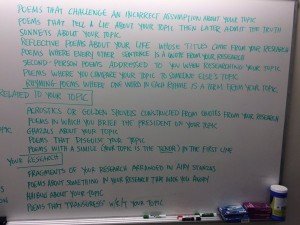 POEMS THAT CHALLENGE AN INCORRECT ASSUMPTION ABOUT YOUR TOPIC
POEMS THAT TELL A LIE ABOUT YOUR TOPIC THEN LATER ADMIT THE TRUTH
SONNETS ABOUT YOUR TOPIC
REFLECTIVE POEMS ABOUT YOUR LIFE WHOSE TITLES COME FROM YOUR RESEARCH
POEMS WHERE EVERY OTHER SENTENCE IS A QUOTE FROM YOUR RESEARCH
SECOND-PERSON POEMS ADDRESSED TO YOU WHEN RESEARCHING YOUR TOPIC
POEMS WHERE YOU COMPARE YOUR TOPIC TO SOMEONE ELSE'S TOPIC
RHYMING POEMS WHERE ONE WORD IN EACH RHYME IS A TERM FROM YOUR TOPIC
RELATED TO YOUR TOPIC
ACROSTICS OR GOLDEN SHOVELS CONSTRUCTED FROM QUOTES FROM YOUR RESEARCH
POEMS IN WHICH YOU BRIEF THE PRESIDENT ON YOUR TOPIC
GHAZALS ABOUT YOUR TOPIC
POEMS THAT DISGUISE YOUR TOPIC
POEMS WITH A SIMILE (YOUR TOPIC IS THE TENOR) IN THE FIRST LINE
YOUR RESEARCH
FRAGMENTS OF YOUR RESEARCH ARRANGED IN AIRY STANZAS
POEMS ABOUT SOMETHING IN YOUR RESEARCH THAT MADE YOU ANGRY
HAIBUN ABOUT YOUR TOPIC
POEMS THAT TRANSGRESS W/R/T YOUR TOPIC